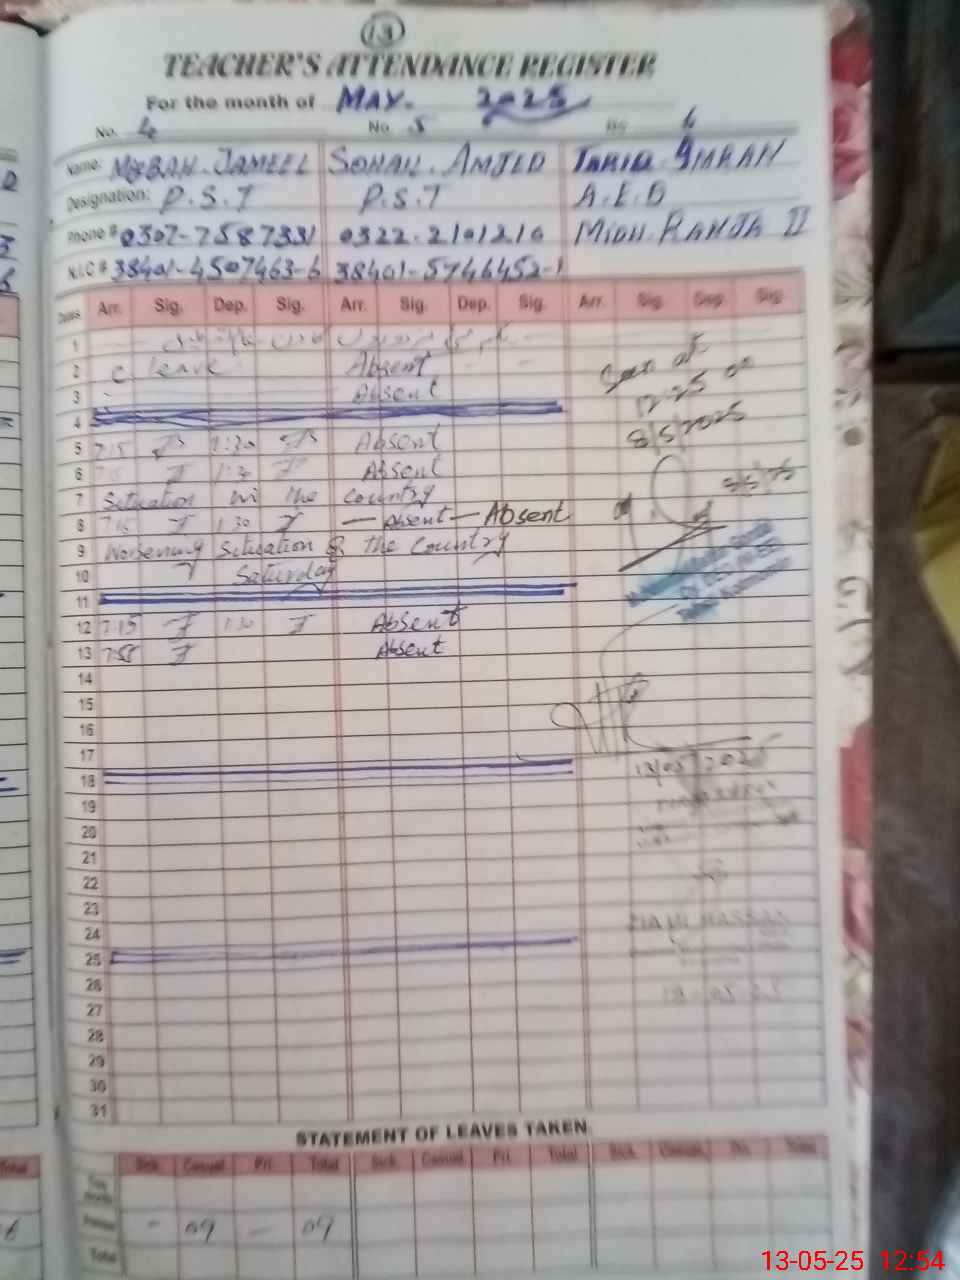 13
TEACHER'S ATTENDANCE REGISTER
For the month of MAY. 2025
No. 4 No. 5 No. 6
Name: JAMEEL SOHAIL. AMJED TARIQ IMRAN
Designation: P.S.T P.S.T A.E.O
Phone # 0307-7587331 0322-2101210 MIDH RANJA II
N.I.C # 38401-4507463-6 38401-5746452-1
Dates Arr. Sig. Dep. Sig. Arr. Sig. Dep. Sig. Arr. Sig. Dep. Sig.
1
2 C. leave Absent
3 Absent
Seen at
12-25 on
8/5/2025
4
5 7:15 1:30 Absent
6 7:15 1:30 Absent
7 Situation in the Country
8 7:15 1:30 — Absent — Absent
9 Worsening Situation of the Country
10 Saturday
11
12 7:15 1:30 Absent
13 7:55 Absent
14
15
16
17
18
13/05/2025
19
20
21
22
23
24
ZIA UL HASSAN
25
26
13-05-25
27
28
29
30
31
STATEMENT OF LEAVES TAKEN
Sick Casual Pri. Total Sick Casual Pri. Total Sick Casual Pri. Total
This Month
Previous - 09 - 09
Total
13-05-25 12:54